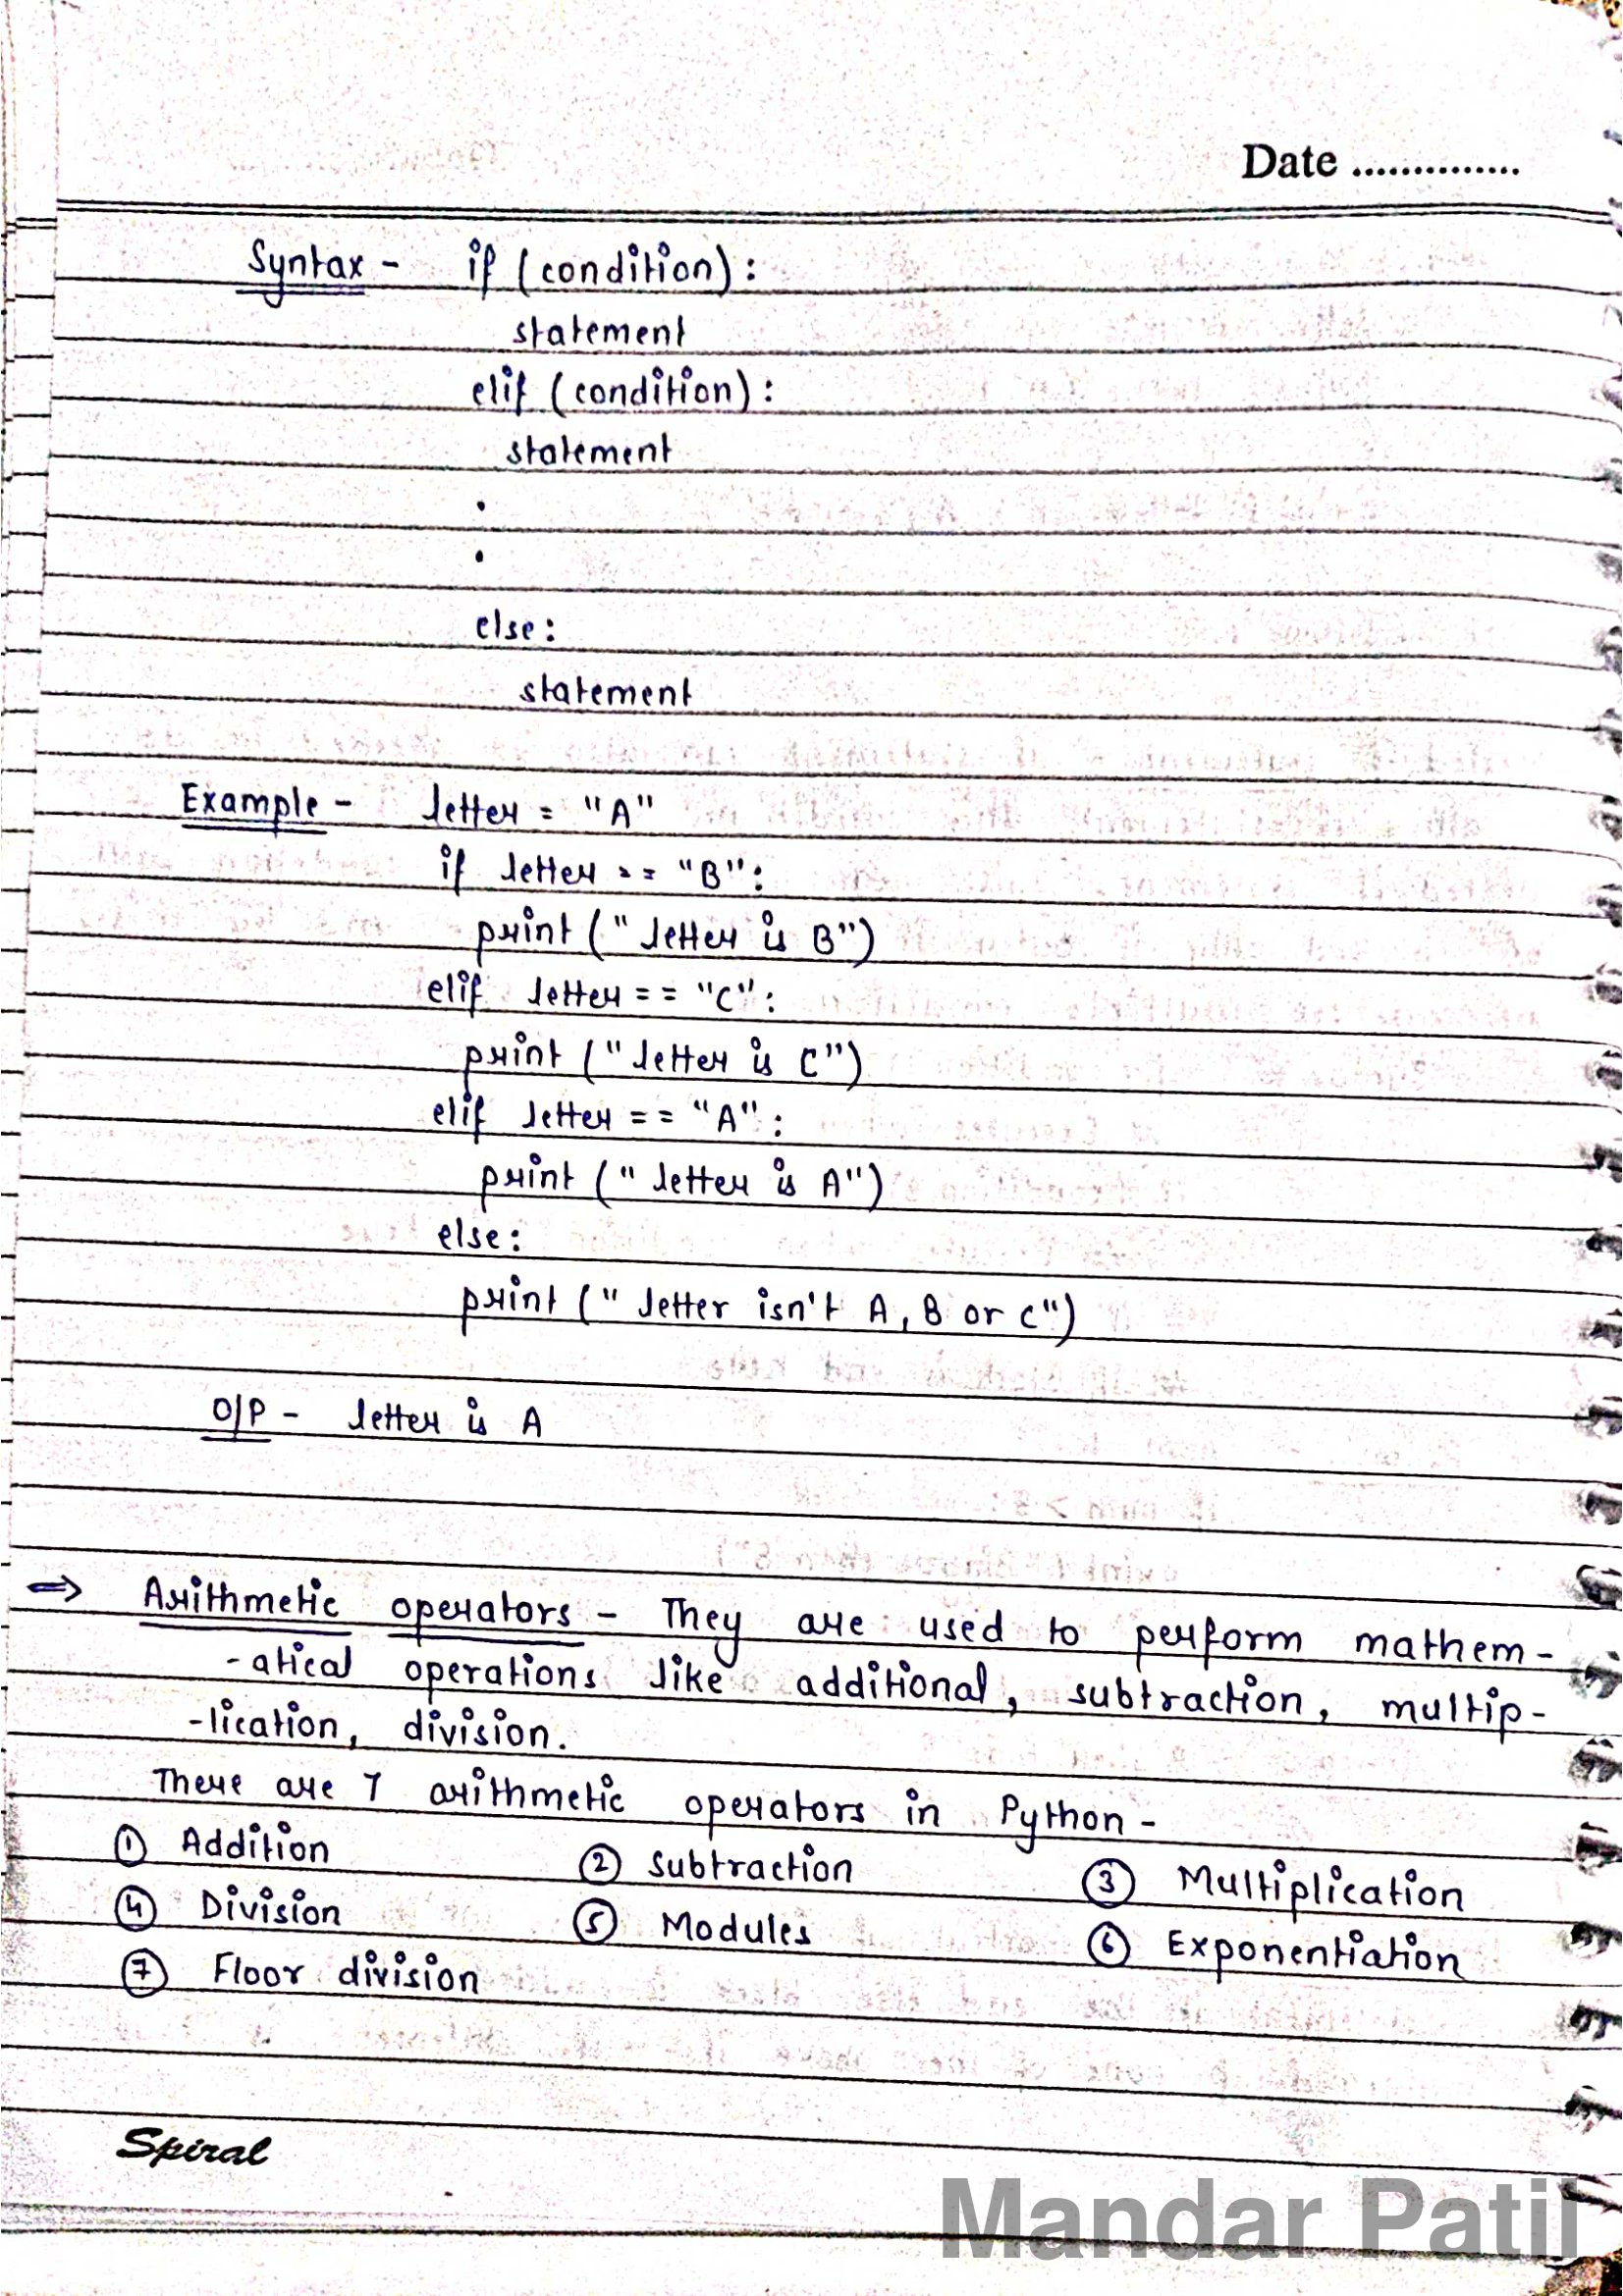 Date ..............
Syntax - if (condition):
statement
elif (condition):
statement
.
.
else:
statement
Example - letter = "A"
if letter == "B":
print (" letter is B")
elif letter == "C":
print (" letter is C")
elif letter == "A":
print (" letter is A")
else:
print (" letter isn't A, B or C")
O/P - letter is A
⇒ Arithmetic operators - They are used to perform mathem-
-atical operations like additional, subtraction, multip-
-lication, division.
There are 7 arithmetic operators in Python -
① Addition ② Subtraction ③ Multiplication
④ Division ⑤ Modules ⑥ Exponentiation
⑦ Floor division
Spiral
Mandar Patil